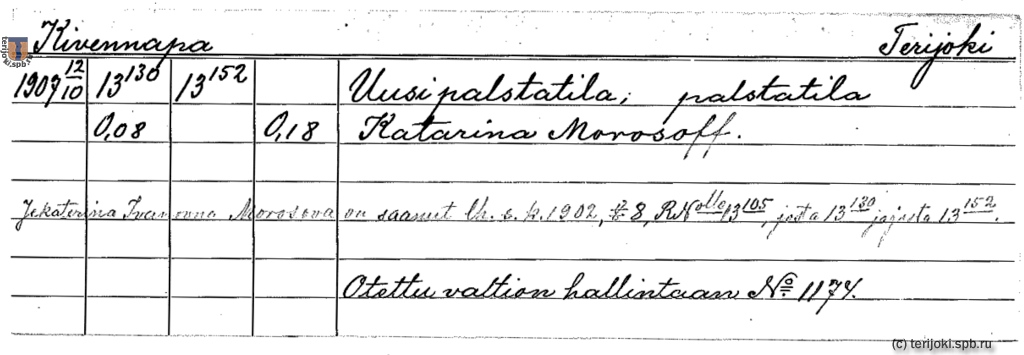 Kivennapa Terijoki
1907 12/10 13¹³⁰ 13¹⁵² Uusi palstatila; palstatila
0,08 0,18 Katarina Morosoff.
Jekaterina Ivanovna Morosova on saanut lh. s. k. 1902, § 8, RNollo 13¹⁰⁵, josta 13¹³⁰ ja josta 13¹⁵².
Otettu valtion hallintaan No 1174.
terijoki.spb.ru
(c) terijoki.spb.ru